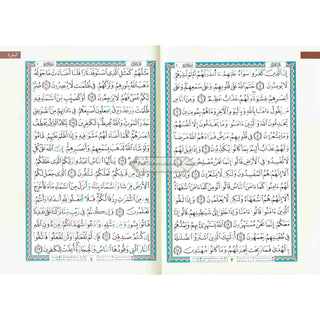 البقرة
إِنَّ الَّذِينَ كَفَرُوا سَوَاءٌ عَلَيْهِمْ ءَأَنذَرْتَهُمْ أَمْ لَمْ تُنذِرْهُمْ
لَا يُؤْمِنُونَ ٦ خَتَمَ اللَّهُ عَلَىٰ قُلُوبِهِمْ وَعَلَىٰ سَمْعِهِمْ وَعَلَىٰ
أَبْصَارِهِمْ غِشَاوَةٌ وَلَهُمْ عَذَابٌ عَظِيمٌ ٧ وَمِنَ النَّاسِ مَن
يَقُولُ ءَامَنَّا بِاللَّهِ وَبِالْيَوْمِ الْءَاخِرِ وَمَا هُم بِمُؤْمِنِينَ ٨
يُخَادِعُونَ اللَّهَ وَالَّذِينَ ءَامَنُوا وَمَا يَخْدَعُونَ إِلَّا أَنفُسَهُمْ
وَمَا يَشْعُرُونَ ٩ فِي قُلُوبِهِم مَّرَضٌ فَزَادَهُمُ اللَّهُ مَرَضًا
وَلَهُمْ عَذَابٌ أَلِيمٌ بِمَا كَانُوا يَكْذِبُونَ ١٠ وَإِذَا قِيلَ لَهُمْ
لَا تُفْسِدُوا فِي الْأَرْضِ قَالُوا إِنَّمَا نَحْنُ مُصْلِحُونَ ١١
أَلَا إِنَّهُمْ هُمُ الْمُفْسِدُونَ وَلَٰكِن لَّا يَشْعُرُونَ ١٢ وَإِذَا
قِيلَ لَهُمْ ءَامِنُوا كَمَا ءَامَنَ النَّاسُ قَالُوا أَنُؤْمِنُ كَمَا ءَامَنَ السُّفَهَاءُ
أَلَا إِنَّهُمْ هُمُ السُّفَهَاءُ وَلَٰكِن لَّا يَعْلَمُونَ ١٣ وَإِذَا لَقُوا
الَّذِينَ ءَامَنُوا قَالُوا ءَامَنَّا وَإِذَا خَلَوْا إِلَىٰ شَيَاطِينِهِمْ قَالُوا
إِنَّا مَعَكُمْ إِنَّمَا نَحْنُ مُسْتَهْزِءُونَ ١٤ اللَّهُ يَسْتَهْزِئُ بِهِمْ وَيَمُدُّهُمْ
فِي طُغْيَانِهِمْ يَعْمَهُونَ ١٥ أُولَٰئِكَ الَّذِينَ اشْتَرَوُا الضَّلَالَةَ
بِالْهُدَىٰ فَمَا رَبِحَت تِّجَارَتُهُمْ وَمَا كَانُوا مُهْتَدِينَ ١٦
٣
مَثَلُهُمْ كَمَثَلِ الَّذِي اسْتَوْقَدَ نَارًا فَلَمَّا أَضَاءَتْ مَا حَوْلَهُ
ذَهَبَ اللَّهُ بِنُورِهِمْ وَتَرَكَهُمْ فِي ظُلُمَاتٍ لَّا يُبْصِرُونَ ١٧
صُمٌّ بُكْمٌ عُمْيٌ فَهُمْ لَا يَرْجِعُونَ ١٨ أَوْ كَصَيِّبٍ مِّنَ السَّمَاءِ فِيهِ
ظُلُمَاتٌ وَرَعْدٌ وَبَرْقٌ يَجْعَلُونَ أَصَابِعَهُمْ فِي ءَاذَانِهِم مِّنَ
الصَّوَاعِقِ حَذَرَ الْمَوْتِ وَاللَّهُ مُحِيطٌ بِالْكَافِرِينَ ١٩ يَكَادُ الْبَرْقُ يَخْطَفُ
أَبْصَارَهُمْ كُلَّمَا أَضَاءَ لَهُم مَّشَوْا فِيهِ وَإِذَا أَظْلَمَ عَلَيْهِمْ قَامُوا
وَلَوْ شَاءَ اللَّهُ لَذَهَبَ بِسَمْعِهِمْ وَأَبْصَارِهِمْ إِنَّ اللَّهَ عَلَىٰ كُلِّ
شَيْءٍ قَدِيرٌ ٢٠ يَا أَيُّهَا النَّاسُ اعْبُدُوا رَبَّكُمُ الَّذِي خَلَقَكُمْ
وَالَّذِينَ مِن قَبْلِكُمْ لَعَلَّكُمْ تَتَّقُونَ ٢١ الَّذِي جَعَلَ لَكُمُ
الْأَرْضَ فِرَاشًا وَالسَّمَاءَ بِنَاءً وَأَنزَلَ مِنَ السَّمَاءِ مَاءً فَأَخْرَجَ
بِهِ مِنَ الثَّمَرَاتِ رِزْقًا لَّكُمْ فَلَا تَجْعَلُوا لِلَّهِ أَندَادًا وَأَنتُمْ
تَعْلَمُونَ ٢٢ وَإِن كُنتُمْ فِي رَيْبٍ مِّمَّا نَزَّلْنَا عَلَىٰ عَبْدِنَا فَأْتُوا
بِسُورَةٍ مِّن مِّثْلِهِ وَادْعُوا شُهَدَاءَكُم مِّن دُونِ اللَّهِ
إِن كُنتُمْ صَادِقِينَ ٢٣ فَإِن لَّمْ تَفْعَلُوا وَلَن تَفْعَلُوا فَاتَّقُوا
النَّارَ الَّتِي وَقُودُهَا النَّاسُ وَالْحِجَارَةُ أُعِدَّتْ لِلْكَافِرِينَ ٢٤
٤